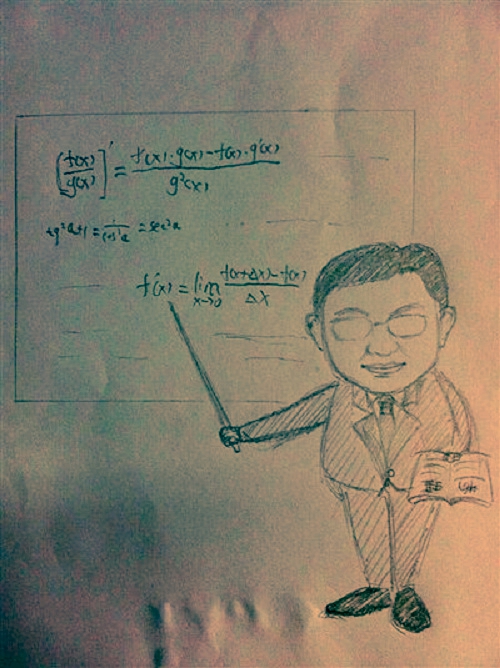 [f(x)/g(x)]' = f'(x)·g(x)-f(x)·g'(x)/g²(x)
tg²a+1 = 1/cos²a = sec²a
f'(x) = lim x→0 f(x+Δx)-f(x)/Δx